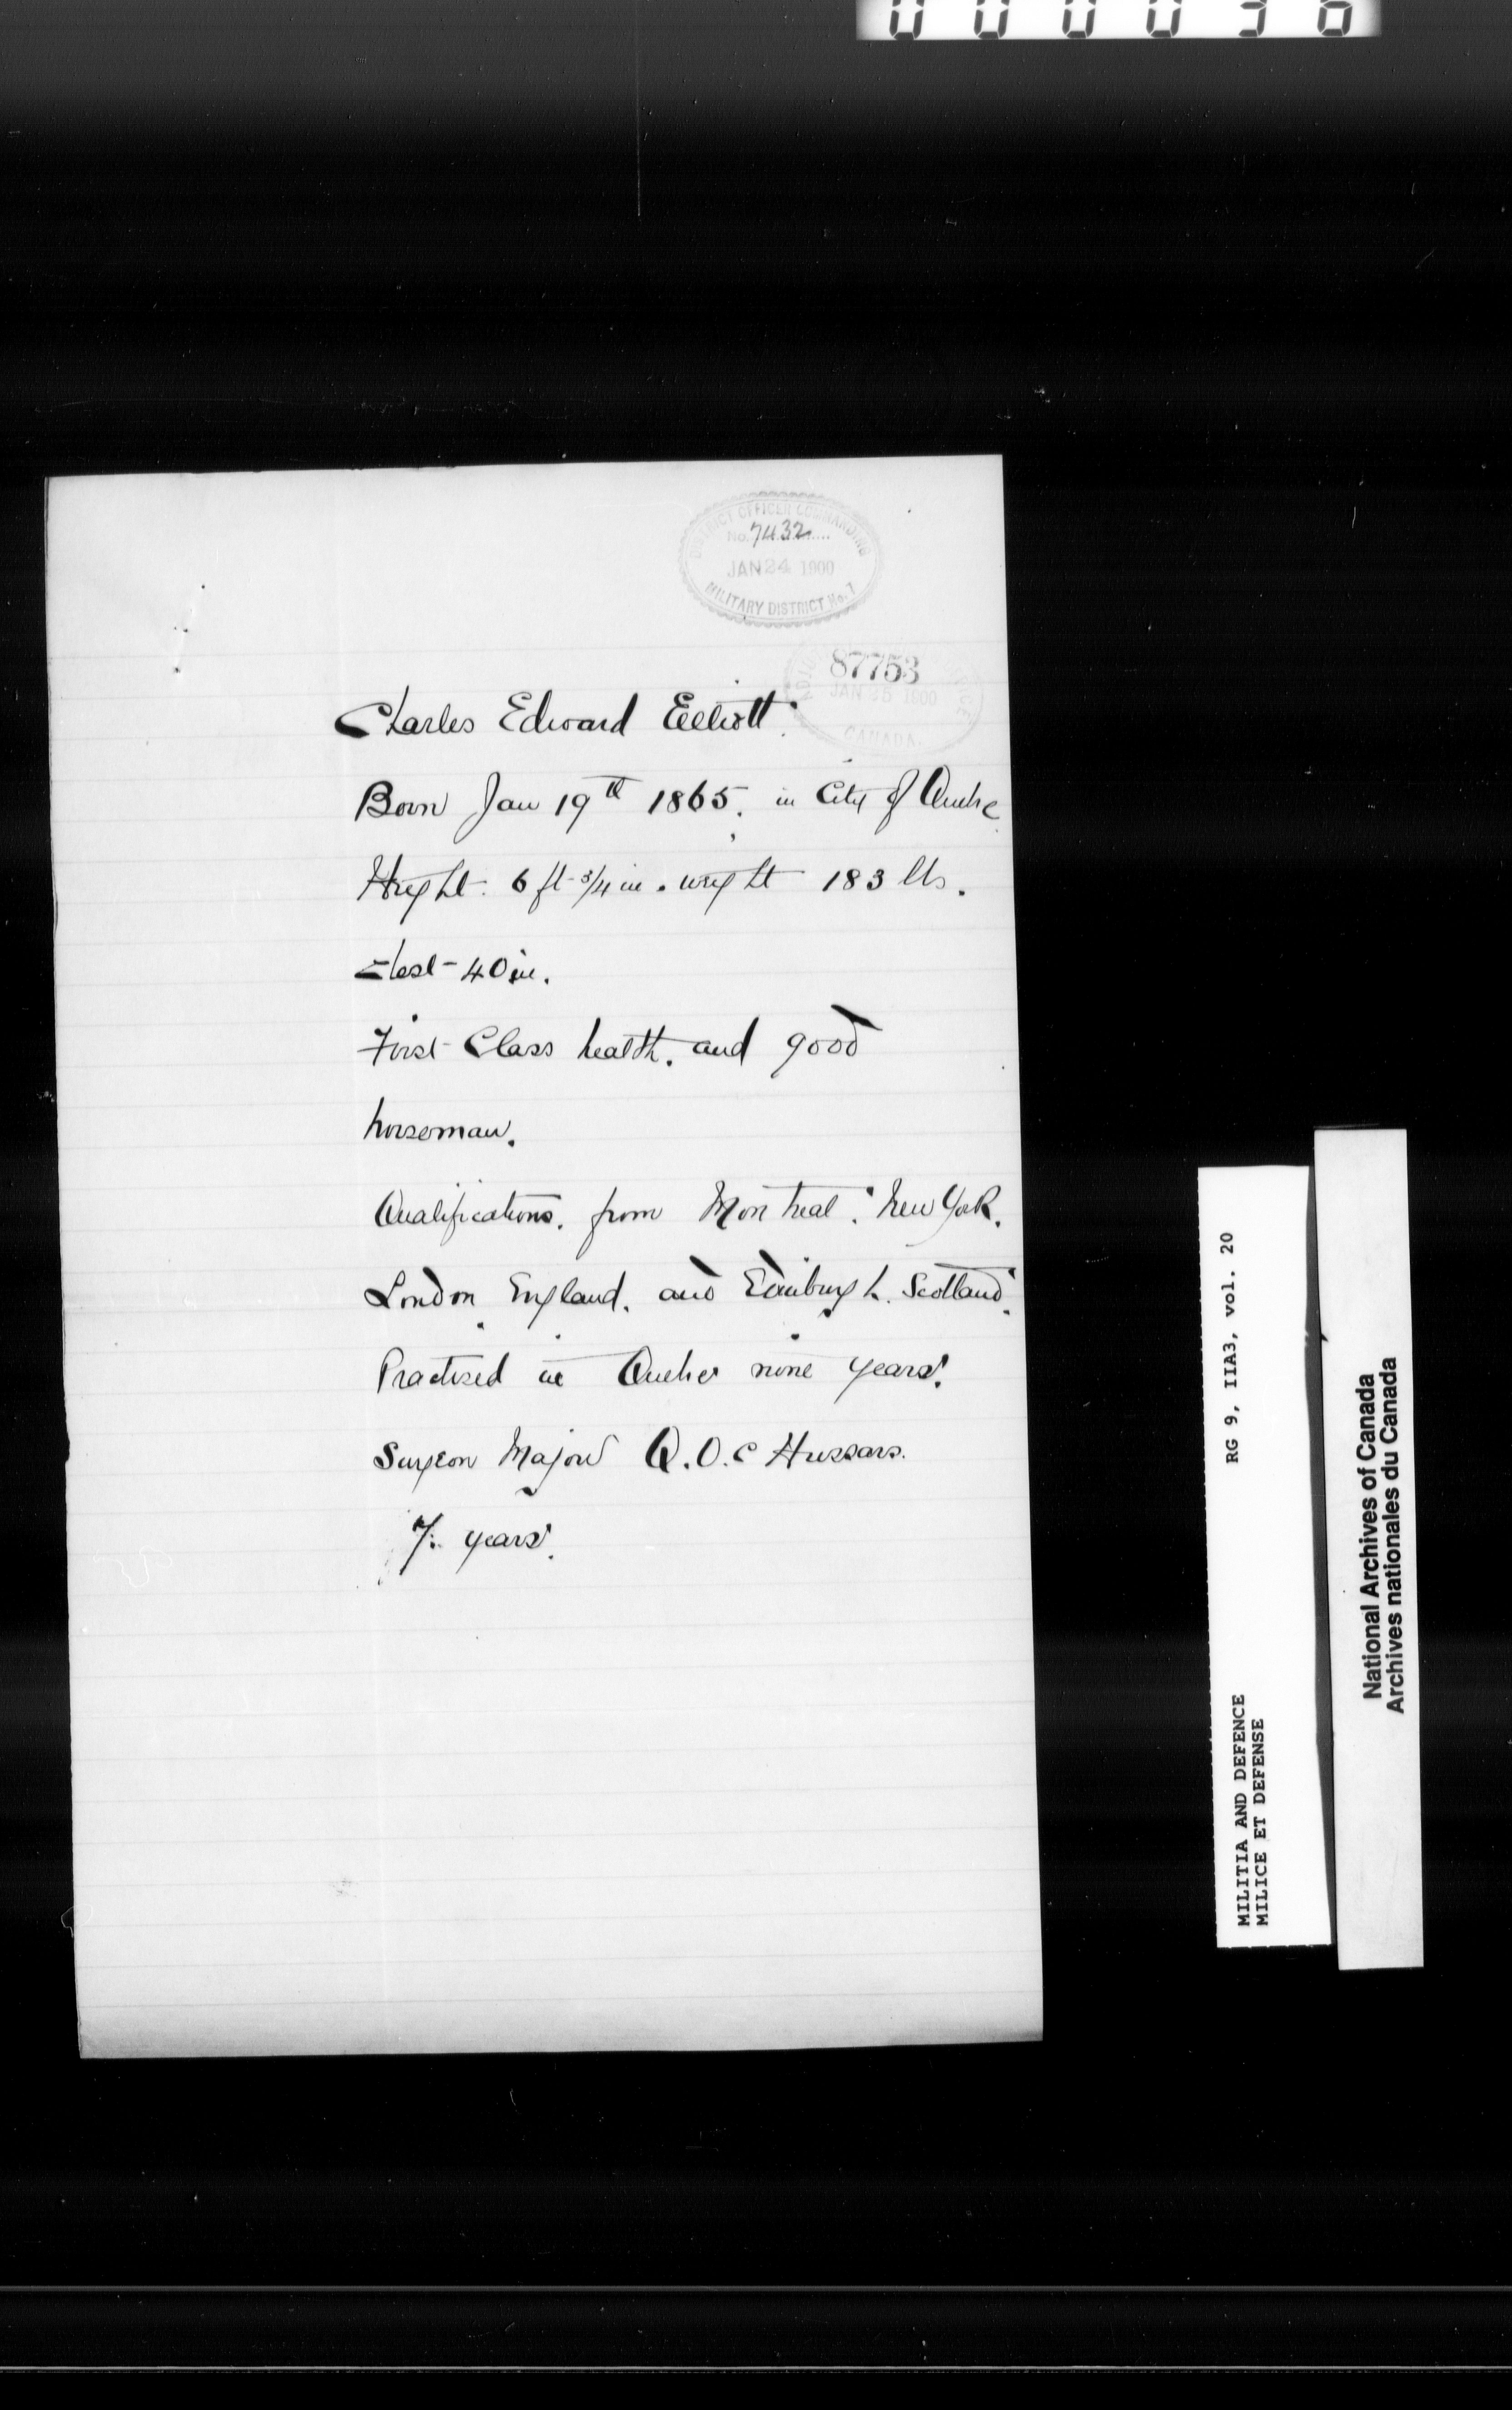 000036
DISTRICT OFFICER COMMANDING
No. 7432
JAN 24 1900
MILITARY DISTRICT No. 7
87753
JAN 25 1900
CANADA
Charles Edward Elliott.
Born Jan 19th 1865. in City of Quebec
Height. 6 ft 3/4 in. weight 183 lbs.
Chest - 40 in.
First Class health. and good
horseman.
Qualifications. from Montreal. New York.
London England. and Edinburgh. Scotland.
Practised in Quebec nine years.
Surgeon Major Q.O.C Hussars.
7. years.
RG 9, IIA3, vol. 20
MILITIA AND DEFENCE
MILICE ET DEFENSE
National Archives of Canada
Archives nationales du Canada